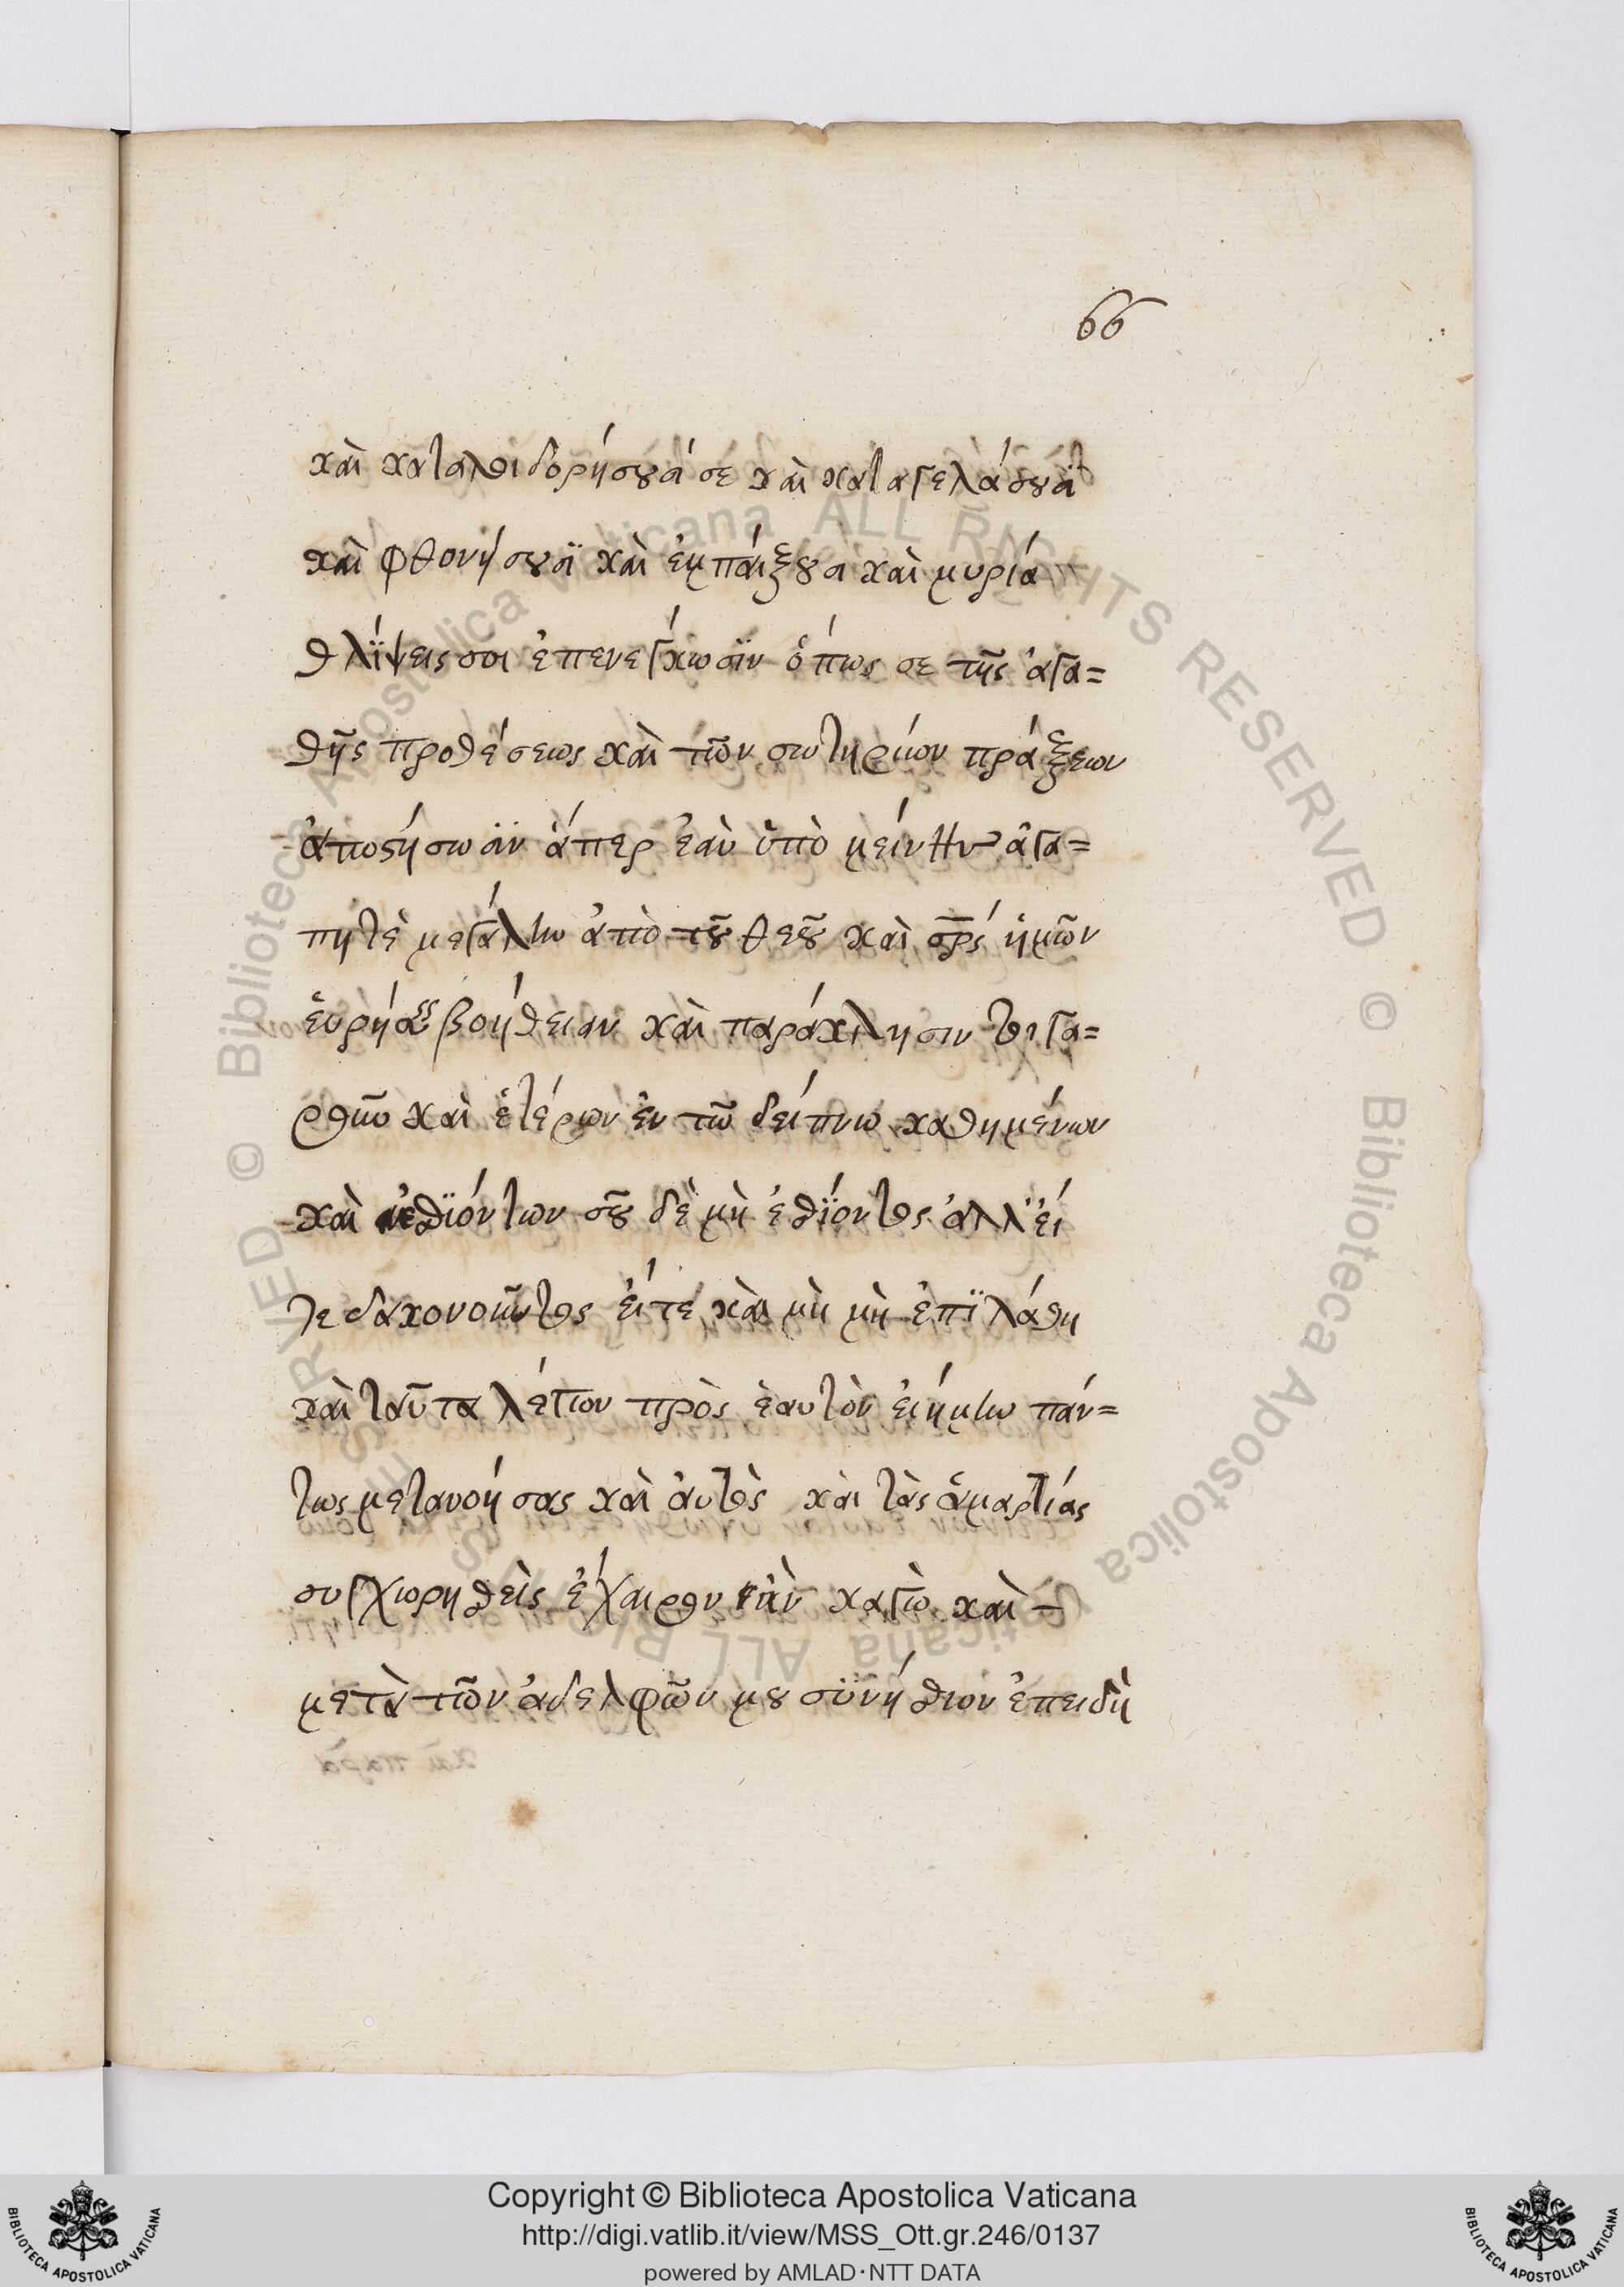 66
καὶ καταλοιδορήσουσί σε καὶ καταγελάσουσϊ
καὶ φθονήσουσϊ καὶ ἐμπαίξουσι καὶ μυρία
θλΐψεις σοι ἐπενεγχωσϊν ὅπως σε τῆς ἀγα=
θῆς προθέσεως καὶ τῶν σωτηρίων πράξεων
ἀποστήσωσϊν ἅπερ ἐὰν ὑπὸ μείνην ἀγα=
πητὲ μεγάλην ἀπὸ τοῦ θεοῦ καὶ σρ̅ς ἡμῶν
εὑρήσεις βοήθειαν καὶ παράκλησιν τοιγα=
ροῦν καὶ ἑτέρων ἐν τῶ δείπνω καθημένων
καὶ ἐσθϊόντων σοῦ δὲ μὴ ἐσθΐοντος ἀλλ' εἴ
τε δακονοῦντος εἴτε καὶ μὴ μὴ ἐπϊλάθη
καὶ ταῦτα λέγων πρὸς ἑαυτὸν εἰ ἤμην πάν=
τως μετανοήσας καὶ αὐτὸς καὶ τὰς ἁμαρτίας
συγχωρηθεὶς ἔχαιρον ἂν καγὼ καὶ
μετὰ τῶν ἀδελφῶν μου σϋνήσθιον ἐπειδὴ
Copyright © Biblioteca Apostolica Vaticana
http://digi.vatlib.it/view/MSS_Ott.gr.246/0137
powered by AMLAD·NTT DATA
BIBLIOTECA APOSTOLICA VATICANA
BIBLIOTECA APOSTOLICA VATICANA
© Biblioteca Apostolica Vaticana ALL RIGHTS RESERVED
© Biblioteca Apostolica Vaticana ALL RIGHTS RESERVED